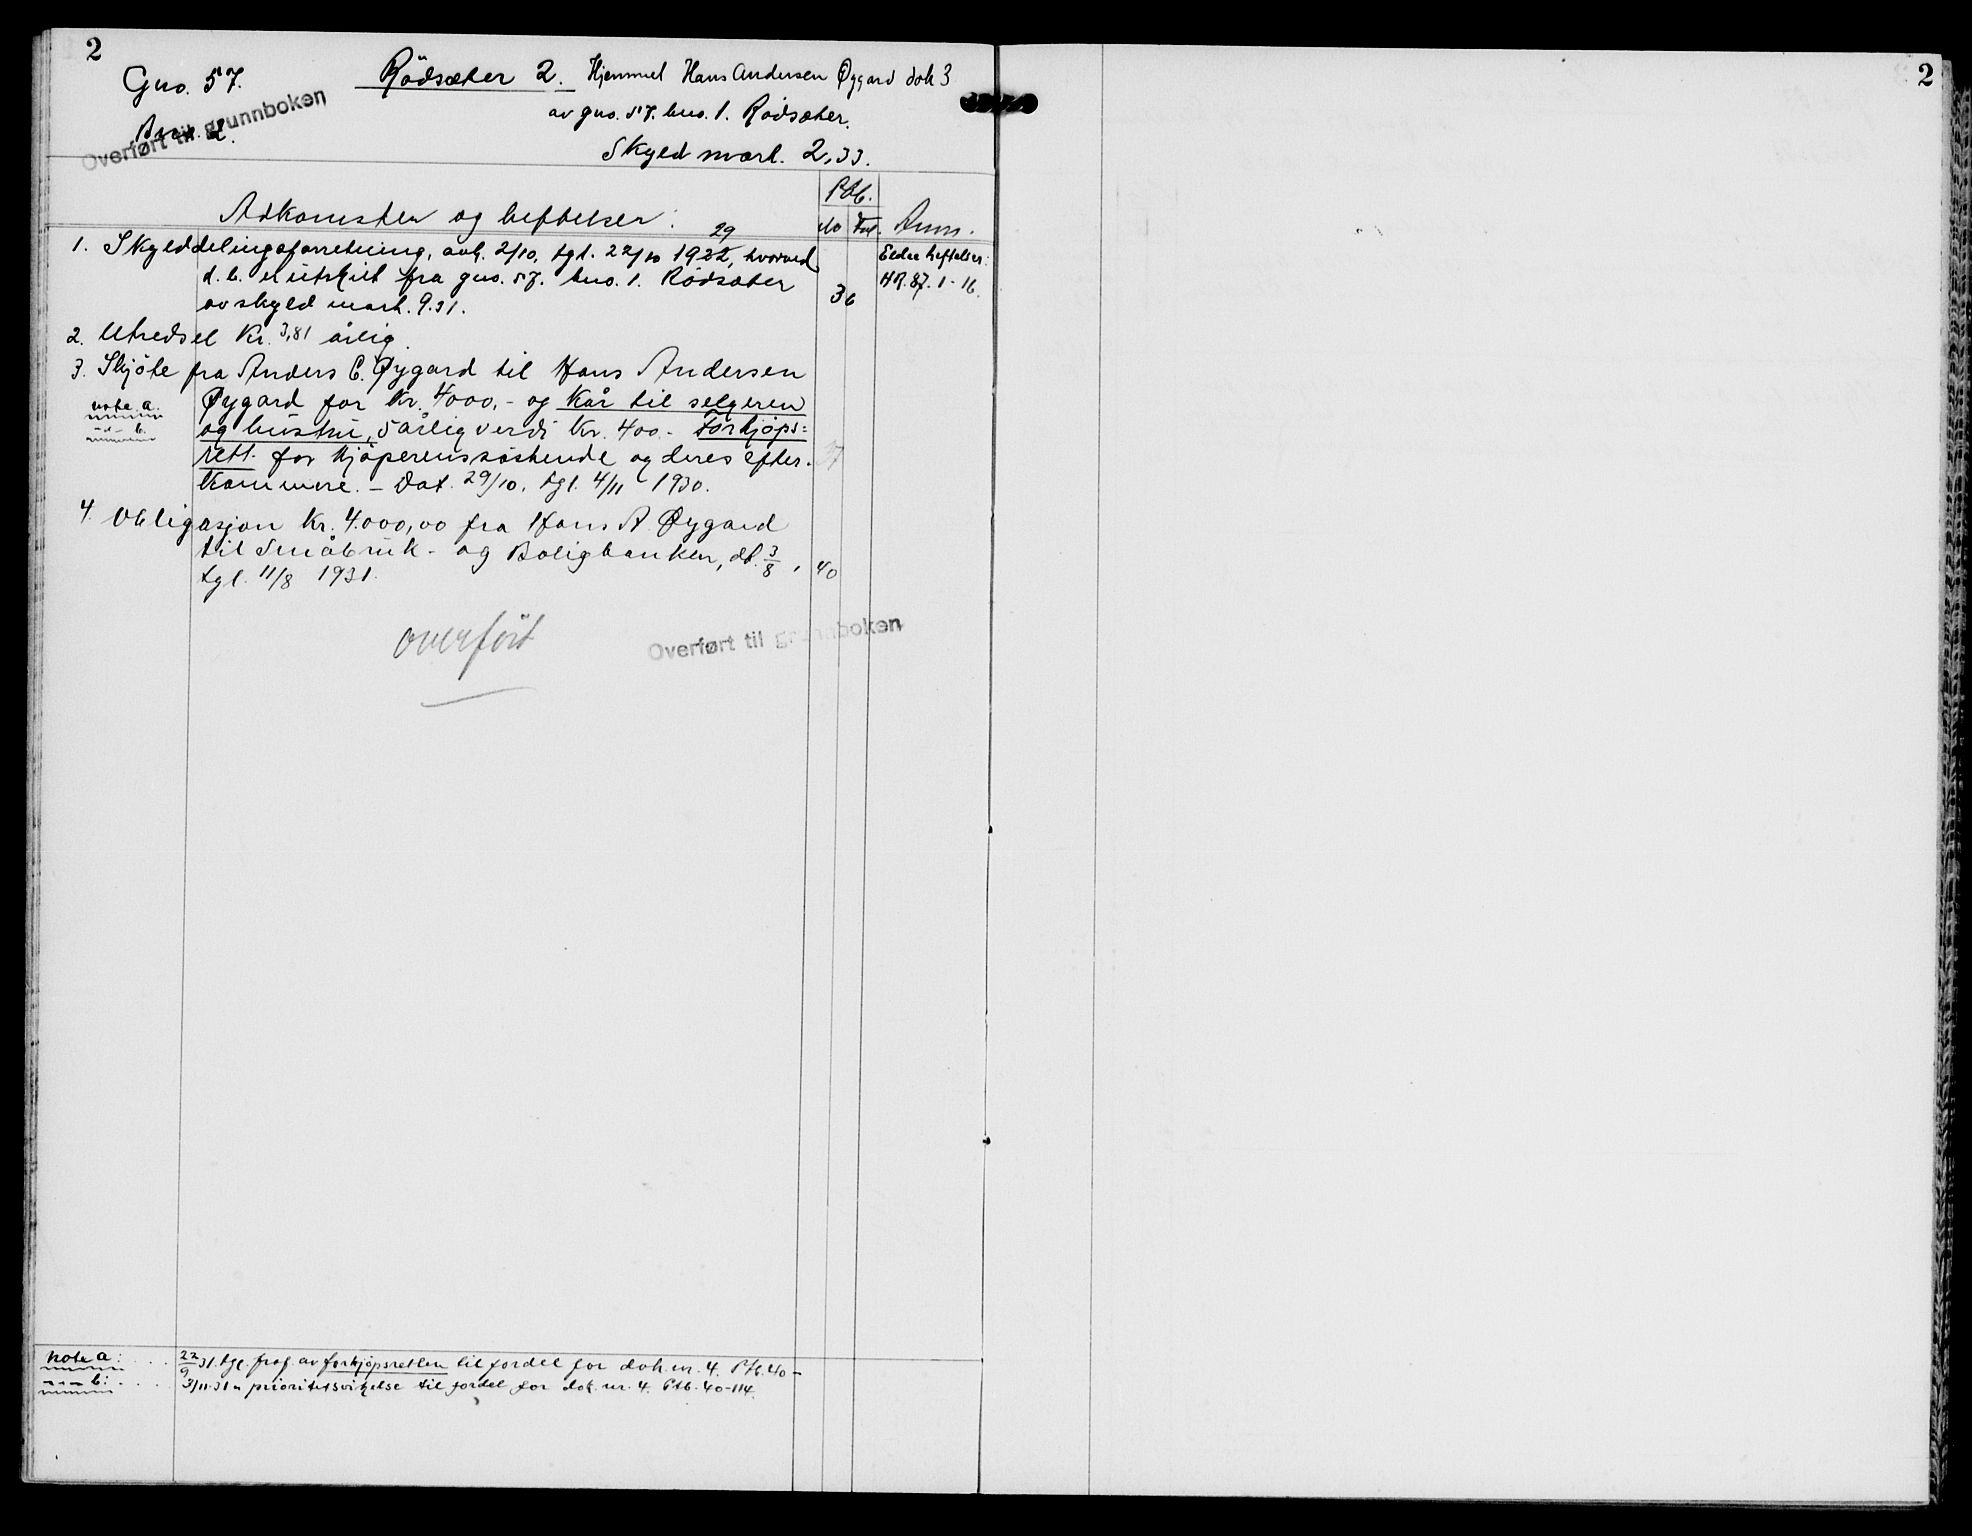 2
Gno. 57. Rödsæter 2. Hjemmel Hans Andersen Øygard dok 3
Bno. 2. av gno. 57. bno. 1. Rödsæter.
Overført til grunnboken
Skyld mark. 2,33.
Adkomster og heftelser: Ptb. Anm.
No Fol.
29
1. Skylddelingsforretning, avh. 2/10, tgl. 22/10 1922, hvorved Eldre heftelser:
d. b. er utskilt fra gno. 57. bno. 1. Rödsæter 36 HR. 87. 1-16.
av skyld mark. 9.31.
2. Utredsel Kr. 3,81 årlig.
3. Skjöte fra Anders C. Øygard til Hans Andersen
note a. Øygard for Kr. 4000,- og Kår til selgeren
-"- b. og hustru, 5 årlig verdi Kr. 400.- Forkjöps=
rett. for kjöperens söskende og deres efter- 37
kommere. - Dat. 29/10, tgl. 4/11 1930.
4. Obligasjon Kr. 4.000,00 fra Hans A. Øygard
til Småbruk- og Boligbanken, dt. 3/8, 40
tgl. 11/8 1931.
overfört
Overført til grunnboken
note a: 22/9 31. tgl. fraf. av forkjöpsretten til fordel for dok. nr. 4. Ptb. 40-
-"- b: 3/11-31 " prioritetsvikelse til fordel for dok. nr. 4. Ptb. 40-114.
2